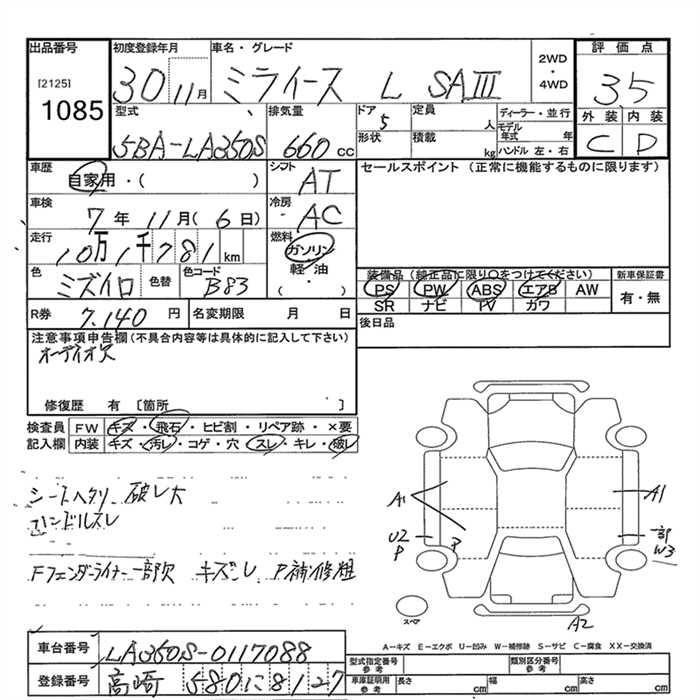 出品番号 初度登録年月 車名・グレード 2WD ・ 4WD 評価点
[2125] 30 11月 ミライース L SAⅢ 3.5
1085 型式 排気量 ドア 5 定員 人 ディーラー・並行 外装 内装
5BA-LA350S 660cc 形状 積載 kg モデル年式 年 ハンドル 左・右 C D
車歴 自家用・( ) シフト AT セールスポイント (正常に機能するものに限ります)
車検 7年 11月 (6日) 冷房 AC
走行 10万1千781km 燃料 ガソリン
軽油 ( )
色 ミズイロ 色替 色コード B83
装備品 (純正品に限り○をつけてください) 新車保証書
PS PW ABS エアB AW 有・無
SR ナビ TV カワ
R券 7,140円 名変期限 月 日
後日品
注意事項申告欄(不具合内容等は具体的に記入して下さい)
オーディオ欠
修復歴 有 [箇所 ]
検査員 FW キズ・飛石・ヒビ割・リペア跡・×要
記入欄 内装 キズ・汚レ・コゲ・穴・スレ・キレ・破レ
シートヘタリ、破レ大
ハンドルスレ
Fフェンダーライナー一部欠 キズ P補修粗
A1 A1
U2 P P 一部 W3
スペア A2
A-キズ E-エクボ U-凹み W-補修跡 S-サビ C-腐食 XX-交換済
車台番号 LA350S-0117088
登録番号 高崎 580 8127
型式指定番号 参考 類別区分番号 参考
車庫証明用 参考 長さ cm 幅 cm 高さ cm